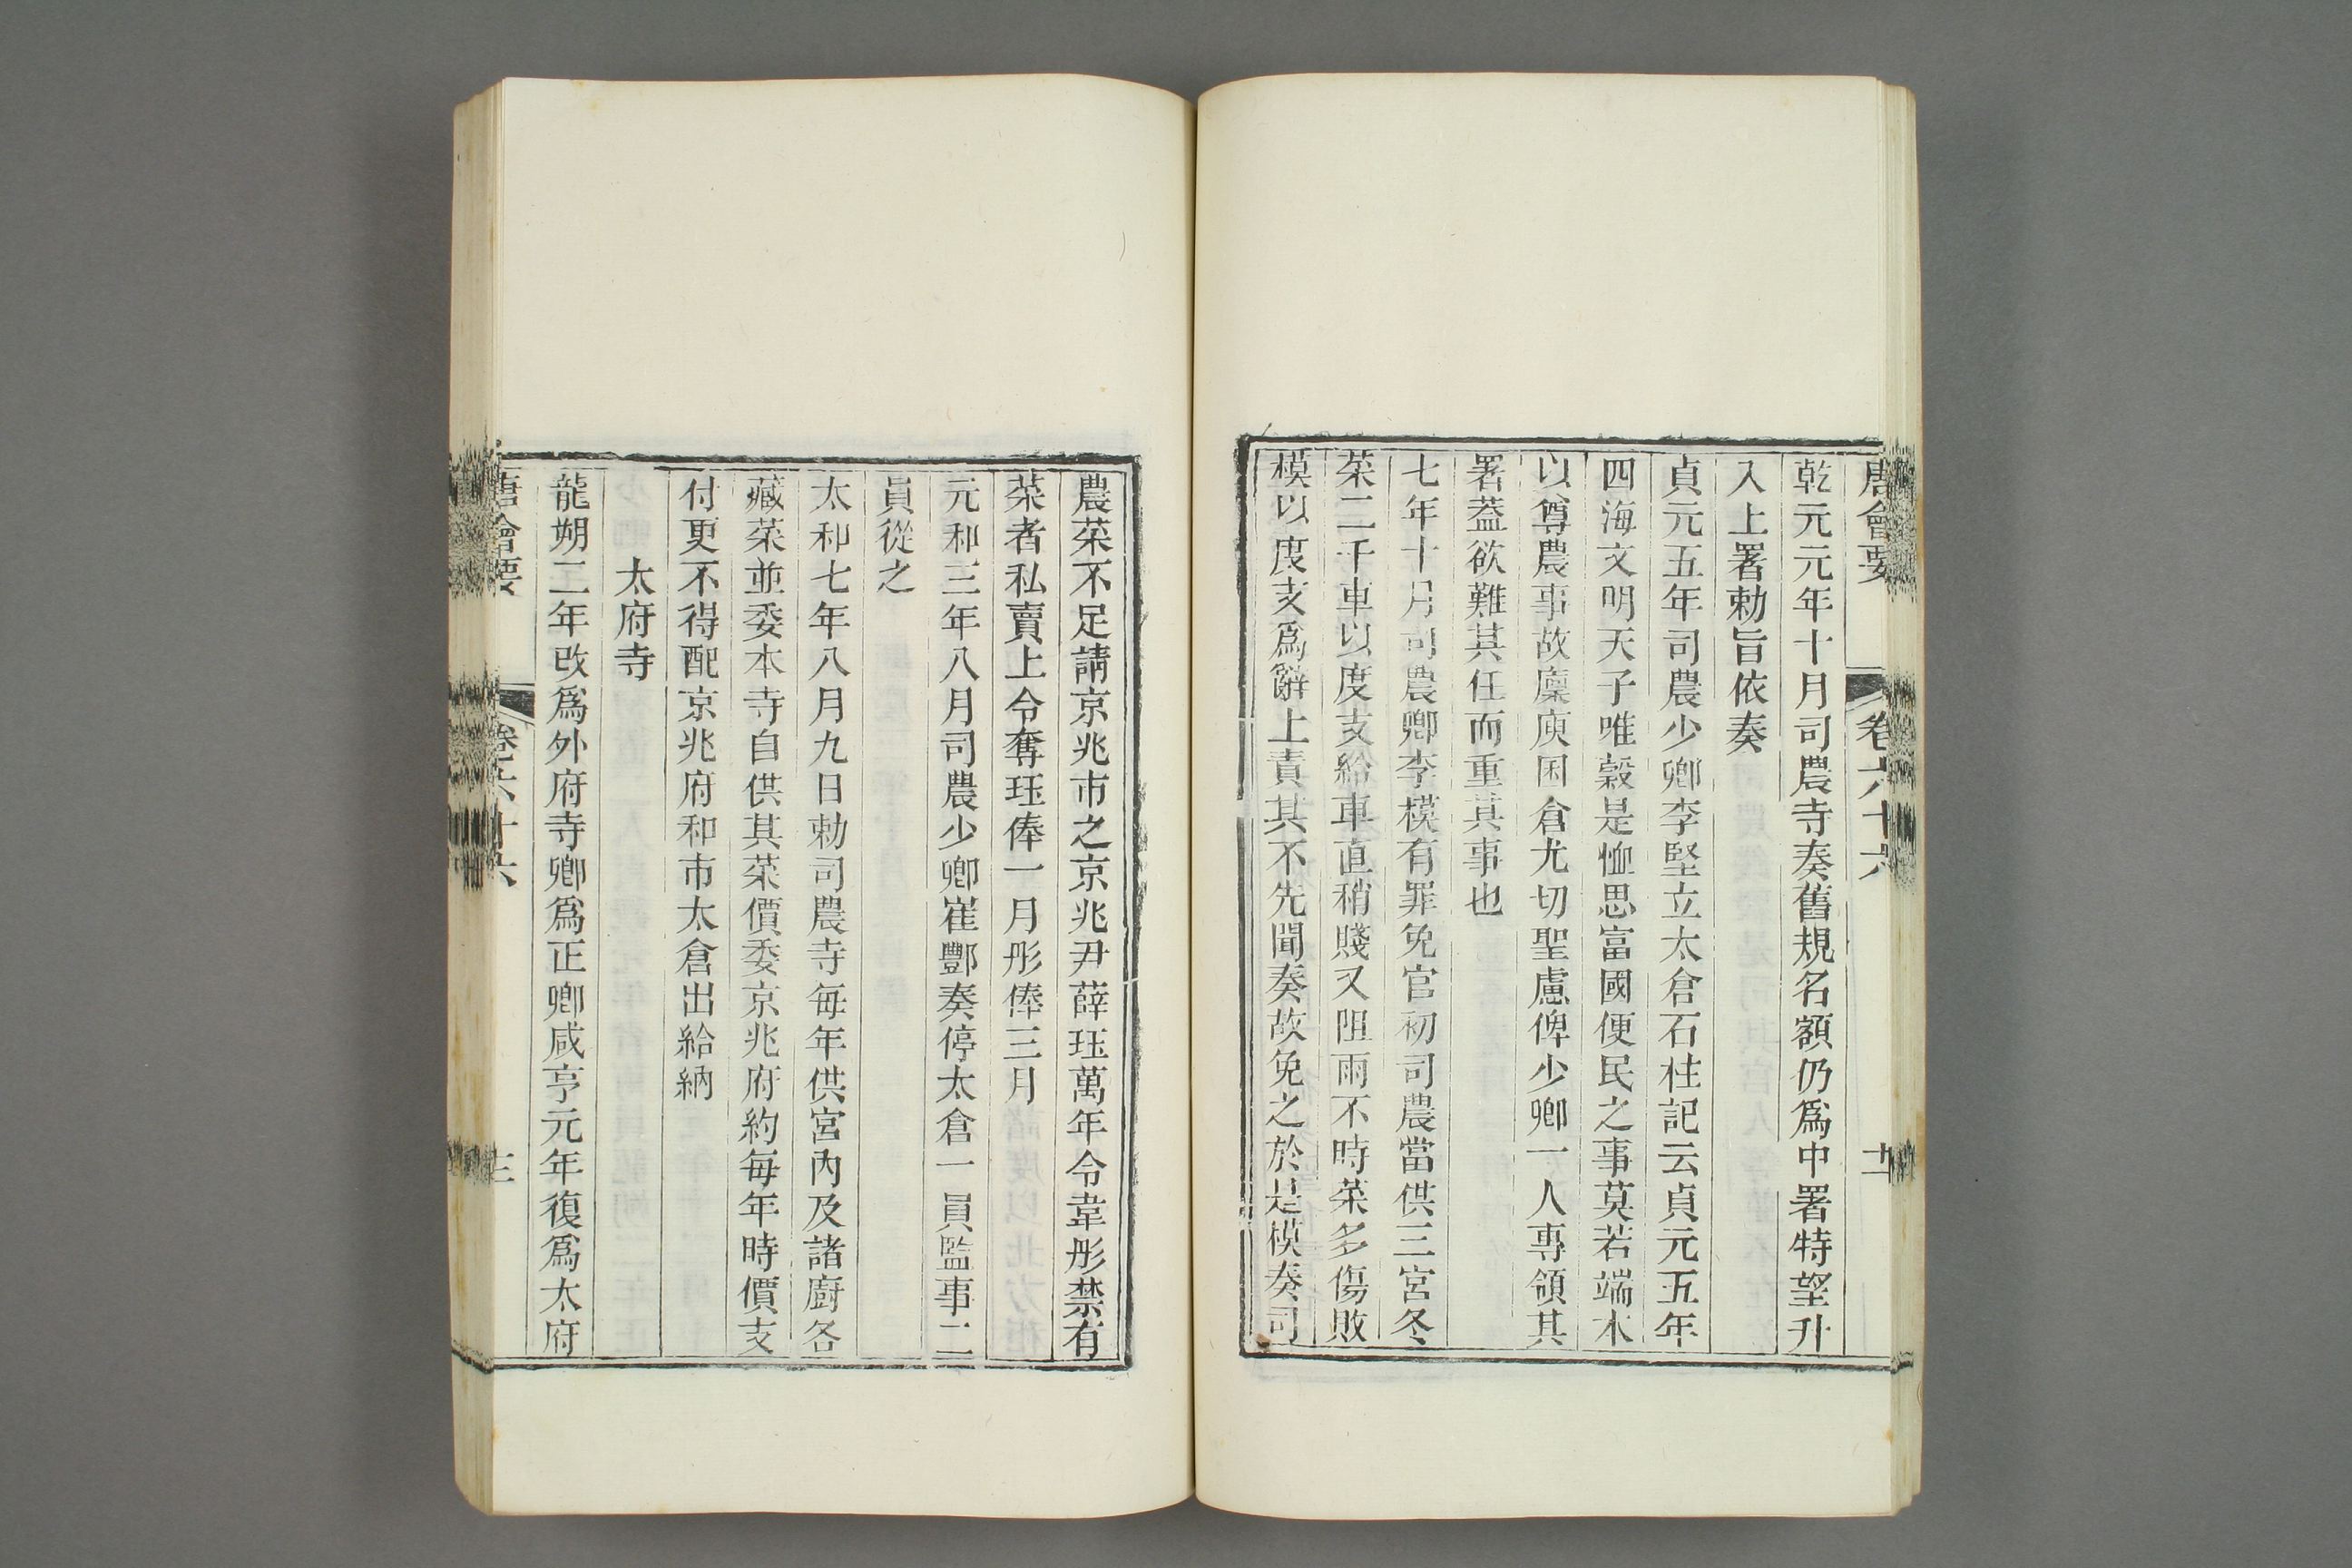 唐會要 卷六十六
乾元元年十月司農寺奏舊規名額仍爲中署特望升
入上署勅旨依奏
貞元五年司農少卿李堅立太倉石柱記云貞元五年
四海文明天子唯穀是恤思富國便民之事莫若端本
以尊農事故廩庾囷倉尤切聖慮俾少卿一人專領其
署蓋欲難其任而重其事也
七年十月司農卿李模有罪免官初司農當供三宮冬
菜二千車以度支給車直稍賤又阻雨不時菜多傷敗
模以度支爲辭上責其不先聞奏故免之於是模奏司
農菜不足請京兆市之京兆尹薛珏萬年令韋彤禁有
菜者私賣上令奪珏俸一月彤俸三月
元和三年八月司農少卿崔酆奏停太倉一員監事二
員從之
太和七年八月九日勅司農寺每年供宮內及諸廚各
藏菜並委本寺自供其菜價委京兆府約每年時價支
付更不得配京兆府和市太倉出給納
太府寺
龍朔二年改爲外府寺卿爲正卿咸亨元年復爲太府
唐會要 卷六十六